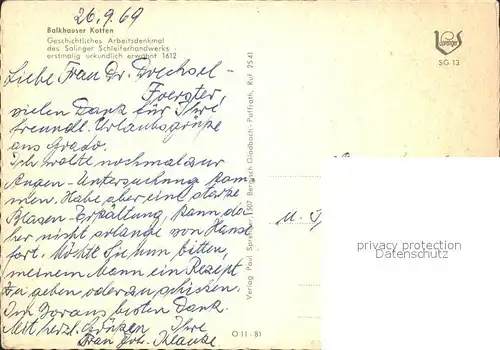 26.9.69
Balkhauser Kotten
Geschichtliches Arbeitsdenkmal
des Solinger Schleiferhandwerks -
erstmalig urkundlich erwähnt 1612
Liebe Frau Dr. Drechsel-
Foerster,
vielen Dank für Ihre
freundl. Urlaubsgrüße
aus Grado.
Ich wollte nochmal zur
Augen-Untersuchung kom-
men. Habe aber eine starke
Blasen-Erkältung, kann da-
her nicht solange von Hause
fort. Möchte Sie nun bitten,
meinem Mann ein Rezept
zu geben, oder an schicken.
Im Voraus besten Dank.
Mit herzl. Grüßen Ihre
Frau Joh. Klauke
Verlag Paul Sprenger, 507 Bergisch Gladbach-Paffrath, Ruf 25 41
O 11 - 81
SG 13
privacy protection
Postkarten